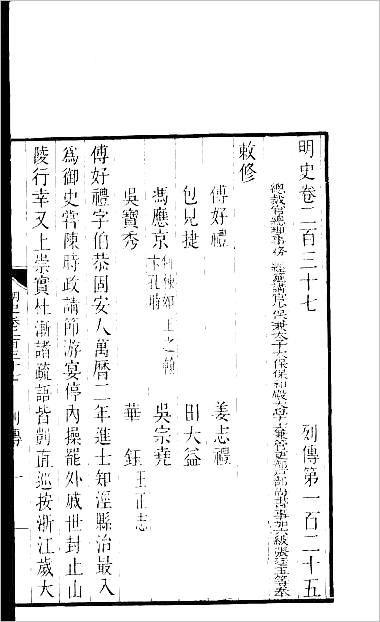 明史卷二百三十七 列傳第一百二十五
總裁官總理事務經筵講官少保兼太子太保保和殿大學士兼管吏部戶部尚書事加六級張廷玉等奉
敕修
傅好禮 姜志禮
包見捷 田大益
馮應京 何棟如 王之翰 卞孔時 吳宗堯
吳寶秀 華鈺 王正志
傅好禮字伯恭固安人萬曆二年進士知涇縣治最入
為御史嘗陳時政請節游宴停內操罷外戚世封止山
陵行幸又上崇實杜漸諸疏語皆剴直巡按浙江歲大